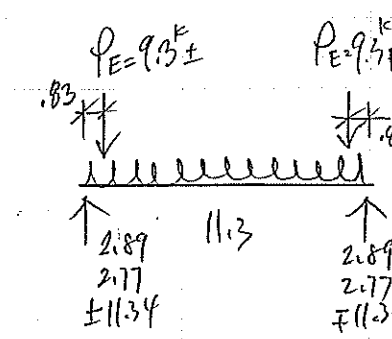 PE=9.3ᵏ±
PE=9.3ᵏ
.83
.8
11.3
2.89
2.77
±11.34
2.89
2.77
∓11.3